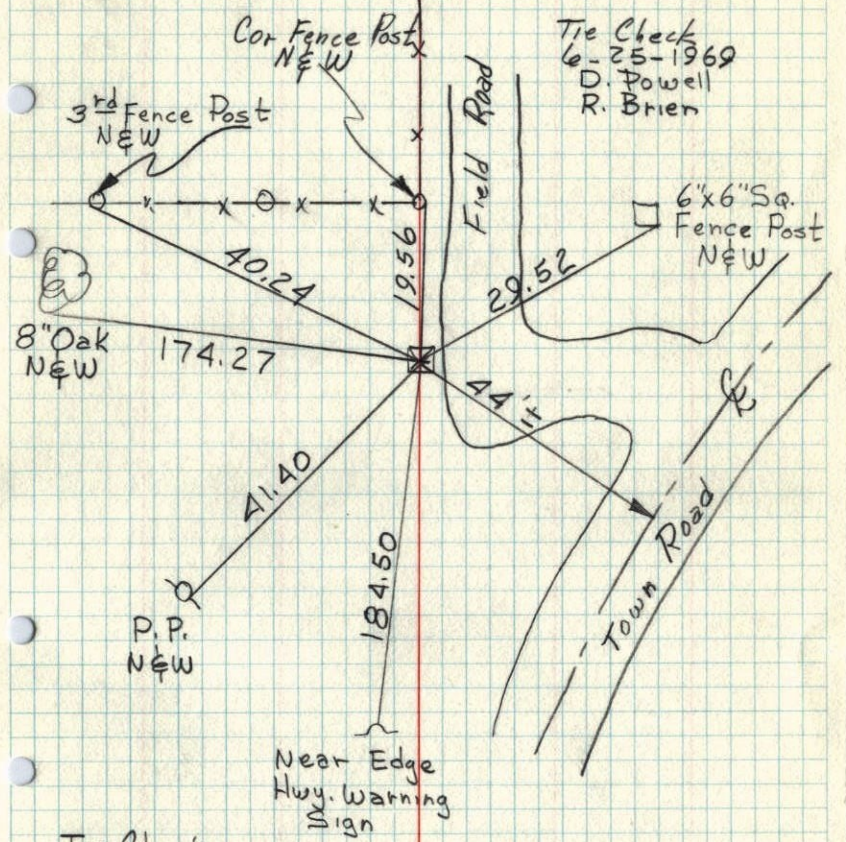 Cor Fence Post
N&W
Tie Check
6-25-1969
D. Powell
R. Brien
3rd Fence Post
N&W
Field Road
6"x6" Sq.
Fence Post
N&W
19.56
40.24
29.52
8" Oak
N&W
174.27
44'±
℄
41.40
184.50
Town Road
P.P.
N&W
Near Edge
Hwy. Warning
Sign